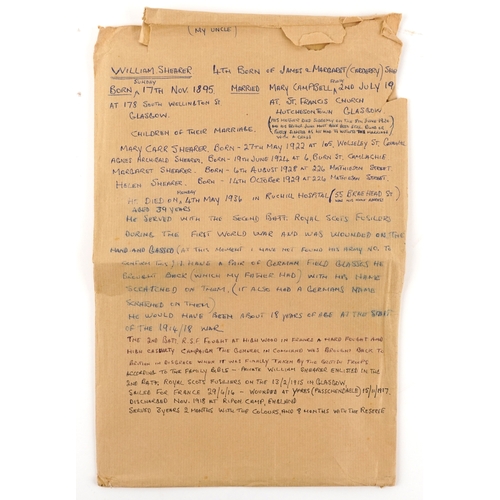 (MY UNCLE)
WILLIAM SHEARER 4TH BORN OF JAMES & MARGARET (CARABERRY)
SUNDAY
BORN 17TH NOV. 1895. MARRIED MARY CAMPBELL 2ND JULY 19
AT 178 SOUTH WELLINGTON ST AT ST. FRANCIS CHURCH
GLASGOW. HUTCHESONTOWN GLASGOW.
CHILDREN OF THEIR MARRIAGE.
WITH A CROSS
MARY CARR SHEARER. BORN - 27TH MAY 1922 AT 105, ST,
AGNES ARCHIBALD SHEARER. BORN - 19TH JUNE 1924 AT 4, BURN ST. CAMLACHIE
MARGARET SHEARER. BORN - 4TH AUGUST 1928 AT 226 MATHIESON STREET.
HELEN SHEARER. BORN - 14TH OCTOBER 1929 AT 226 MATHIESON STREET.
MONDAY
HE DIED ON, 4TH MAY 1936 IN RUCHILL HOSPITAL (55 BRAEHEAD ST)
AGED 39 YEARS
HE SERVED WITH THE SECOND BATT. ROYAL SCOTS FUSILERS
DURING THE FIRST WORLD WAR AND WAS WOUNDED ON THE
HAND AND GASSED (AT THIS MOMENT I HAVE NOT FOUND HIS ARMY NO. TO
CONFIRM THIS) I HAVE A PAIR OF GERMAN FIELD GLASSES HE
BROUGHT BACK (WHICH MY FATHER HAD) WITH HIS NAME
SCRATCHED ON THEM, (IT ALSO HAD A GERMANS NAME
SCRATCHED ON THEM)
HE WOULD HAVE BEEN ABOUT 18 YEARS OF AGE AT THE START
OF THE 1914/18 WAR
THE 2ND BATT. R.S.F FOUGHT AT HIGH WOOD IN FRANCE A HARD FOUGHT AND
HIGH CASUALTY CAMPAIGN THE GENERAL IN COMMAND WAS BROUGHT BACK TO
BRITAIN IN DISGRACE WHEN IT WAS FINALLY TAKEN BY THE BRITISH TROOPS
ACCORDING TO THE FAMILY BIBLE - PRIVATE WILLIAM SHEARER ENLISTED IN THE
2ND BATT. ROYAL SCOTS FUSILERS ON THE 13/2/1915 IN GLASGOW.
SAILED FOR FRANCE 29/6/16 - WOUNDED AT YPRES (PASSCHENDAELE) 15/11/1917.
DISCHARGED NOV. 1918 AT RIPON CAMP, ENGLAND
SERVED 3 YEARS 2 MONTHS WITH THE COLOURS, AND 8 MONTHS WITH THE RESERVE